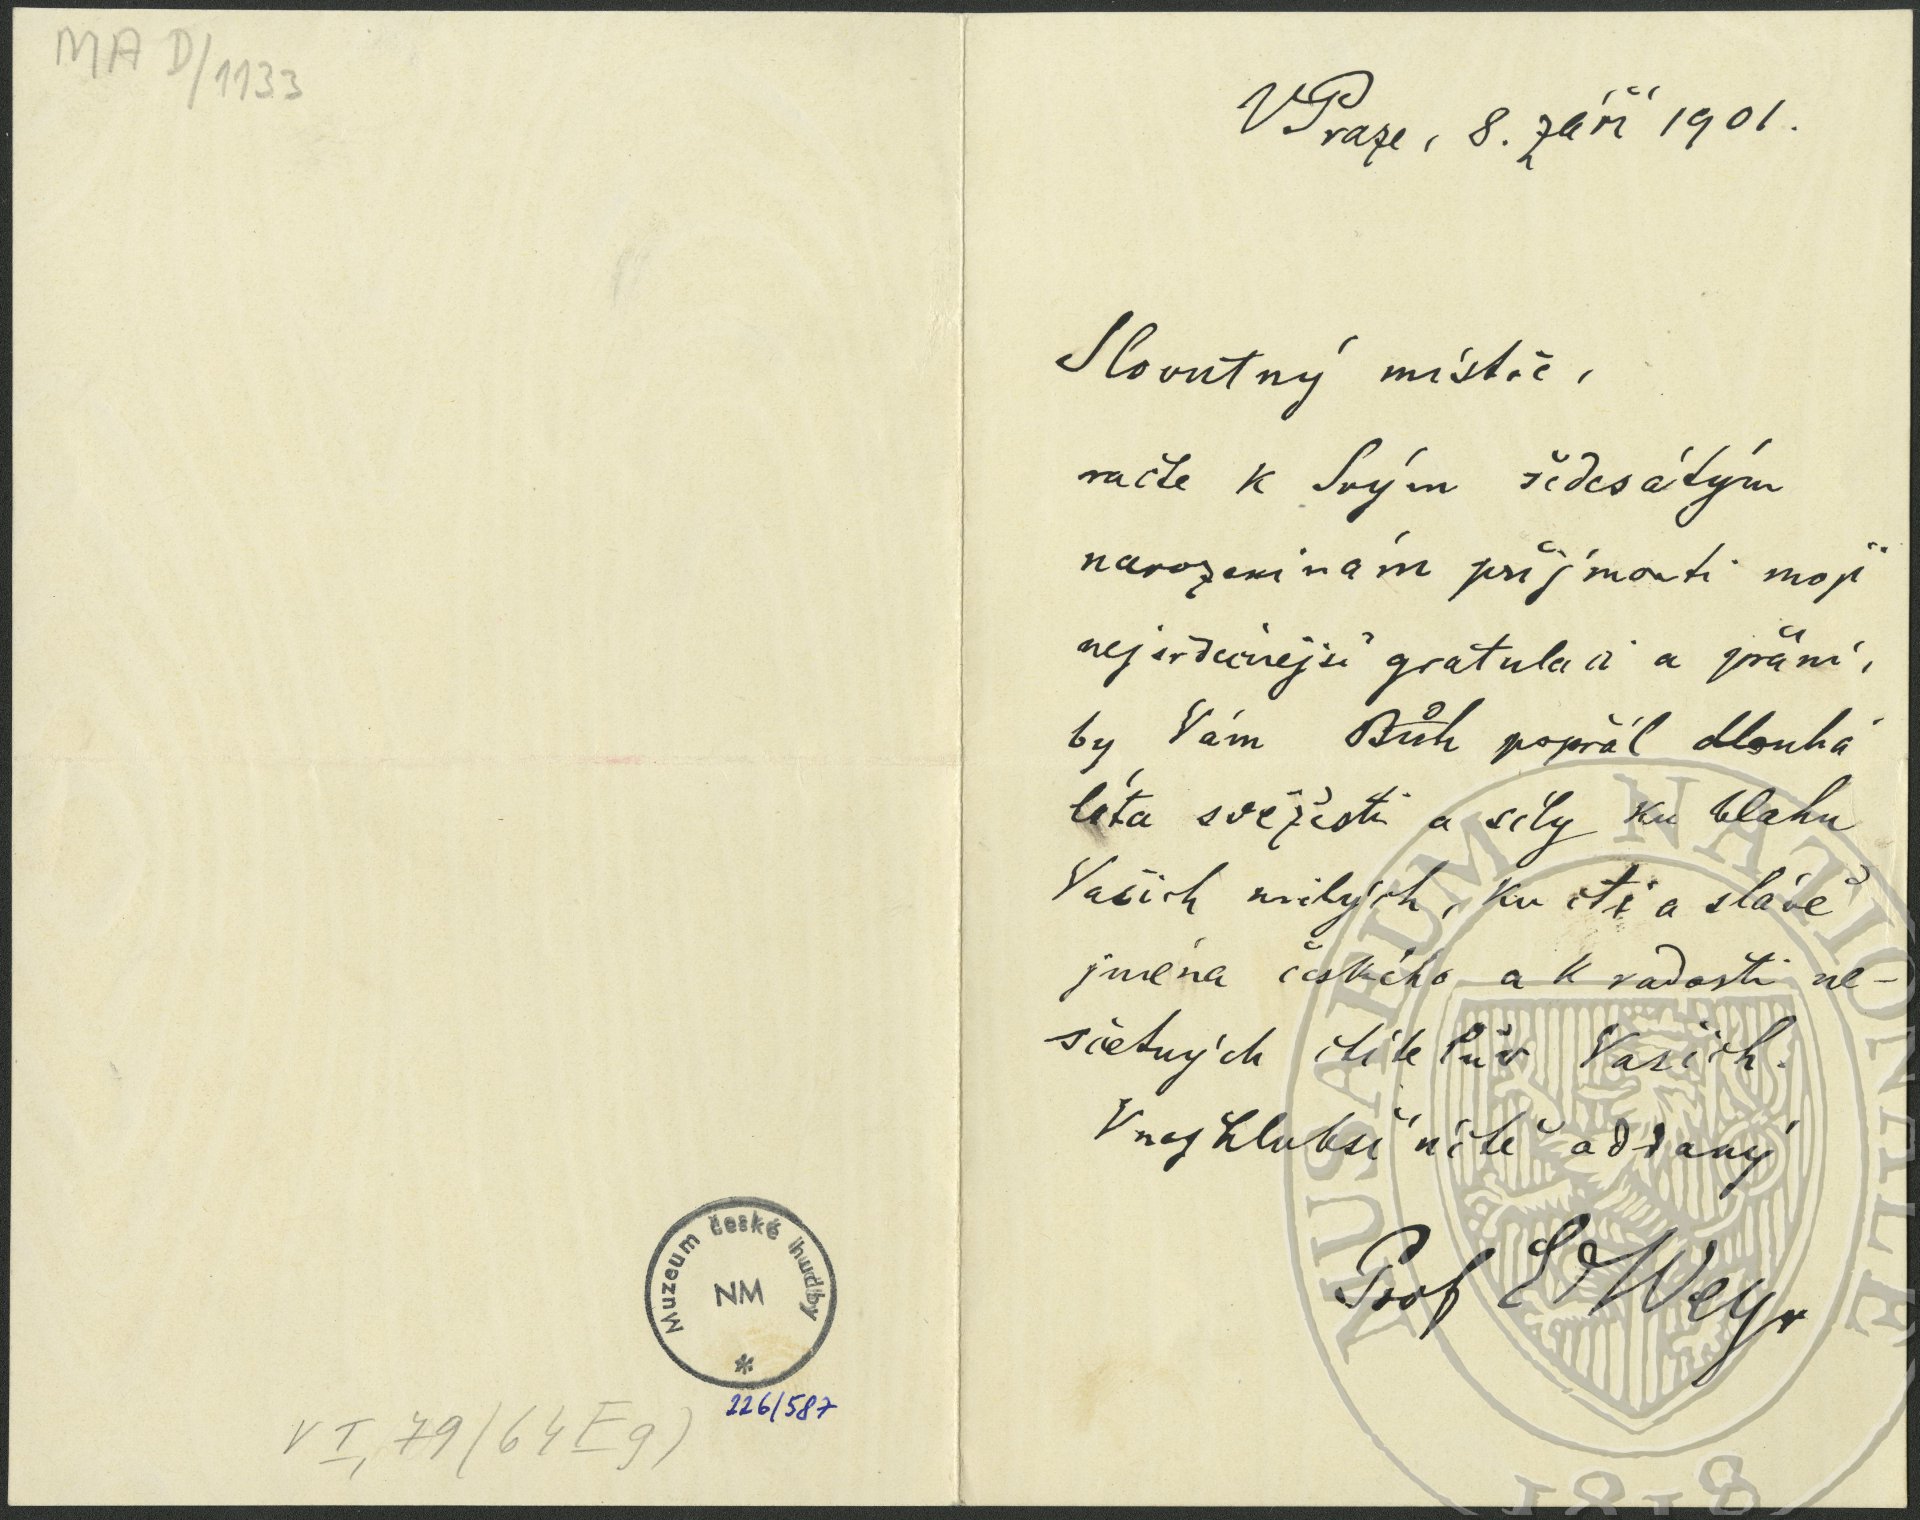 MA D/1133
V Praze, 8. září 1901.
Slovutný mistře,
račte k Svým šedesátým
narozeninám přijmouti moji
nejsrdečnější gratulaci a přání,
by Vám Bůh popřál dlouhá
léta svěžesti a síly ku blahu
Vašich milých, ku cti a slávě
jména českého a k radosti ne-
sčetných ctitelův Vašich.
V nejhlubší úctě oddaný
Prof Ed Weyr
Muzeum české hudby
NM
*
226/587
VI, 79 (64 Eg)
MUSAEUM NATIONALE
1818